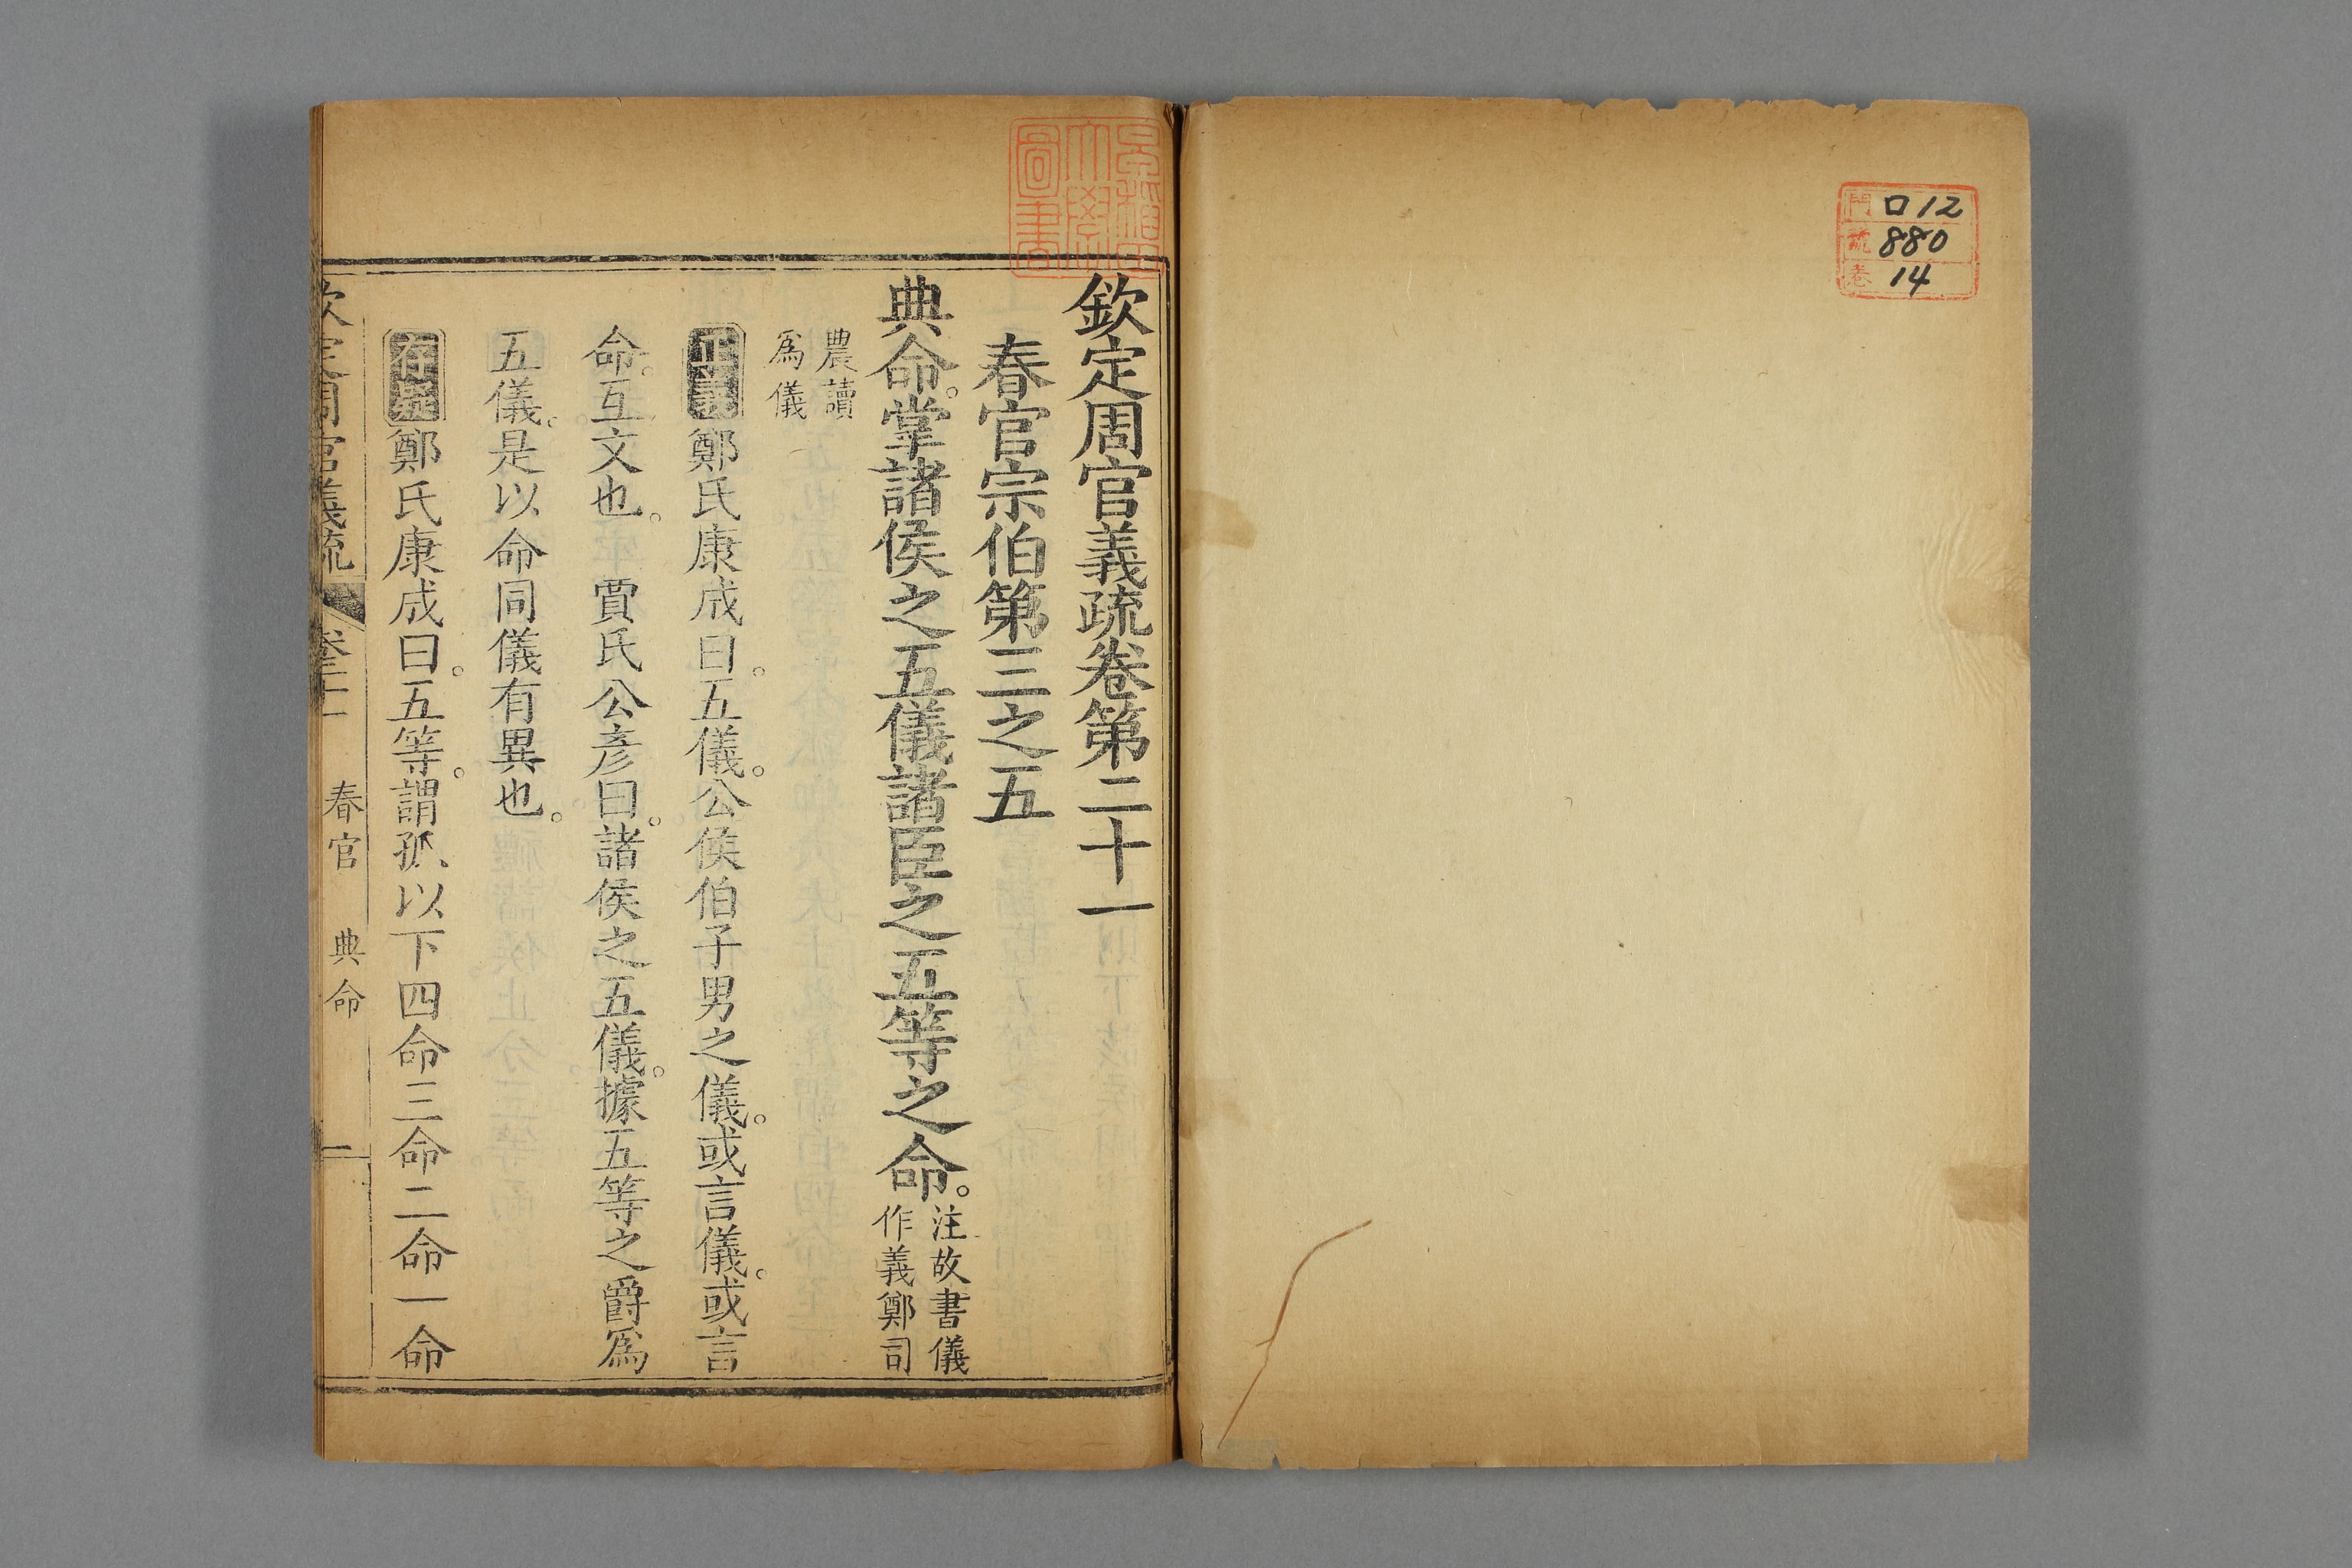 門 ロ12
號 880
卷 14
早稲田
大學
圖書
欽定周官義疏卷第二十一
春官宗伯第三之五
典命。掌諸侯之五儀諸臣之五等之命。注故書儀
作義鄭司
農讀
爲儀
正義 鄭氏康成曰。五儀。公侯伯子男之儀。或言儀。或言
命。互文也。 賈氏公彥曰。諸侯之五儀。據五等之爵爲
五儀。是以命同儀有異也。
存疑 鄭氏康成曰。五等。謂孤以下四命三命二命一命
欽定周官義疏 卷二十一 春官 典命 一